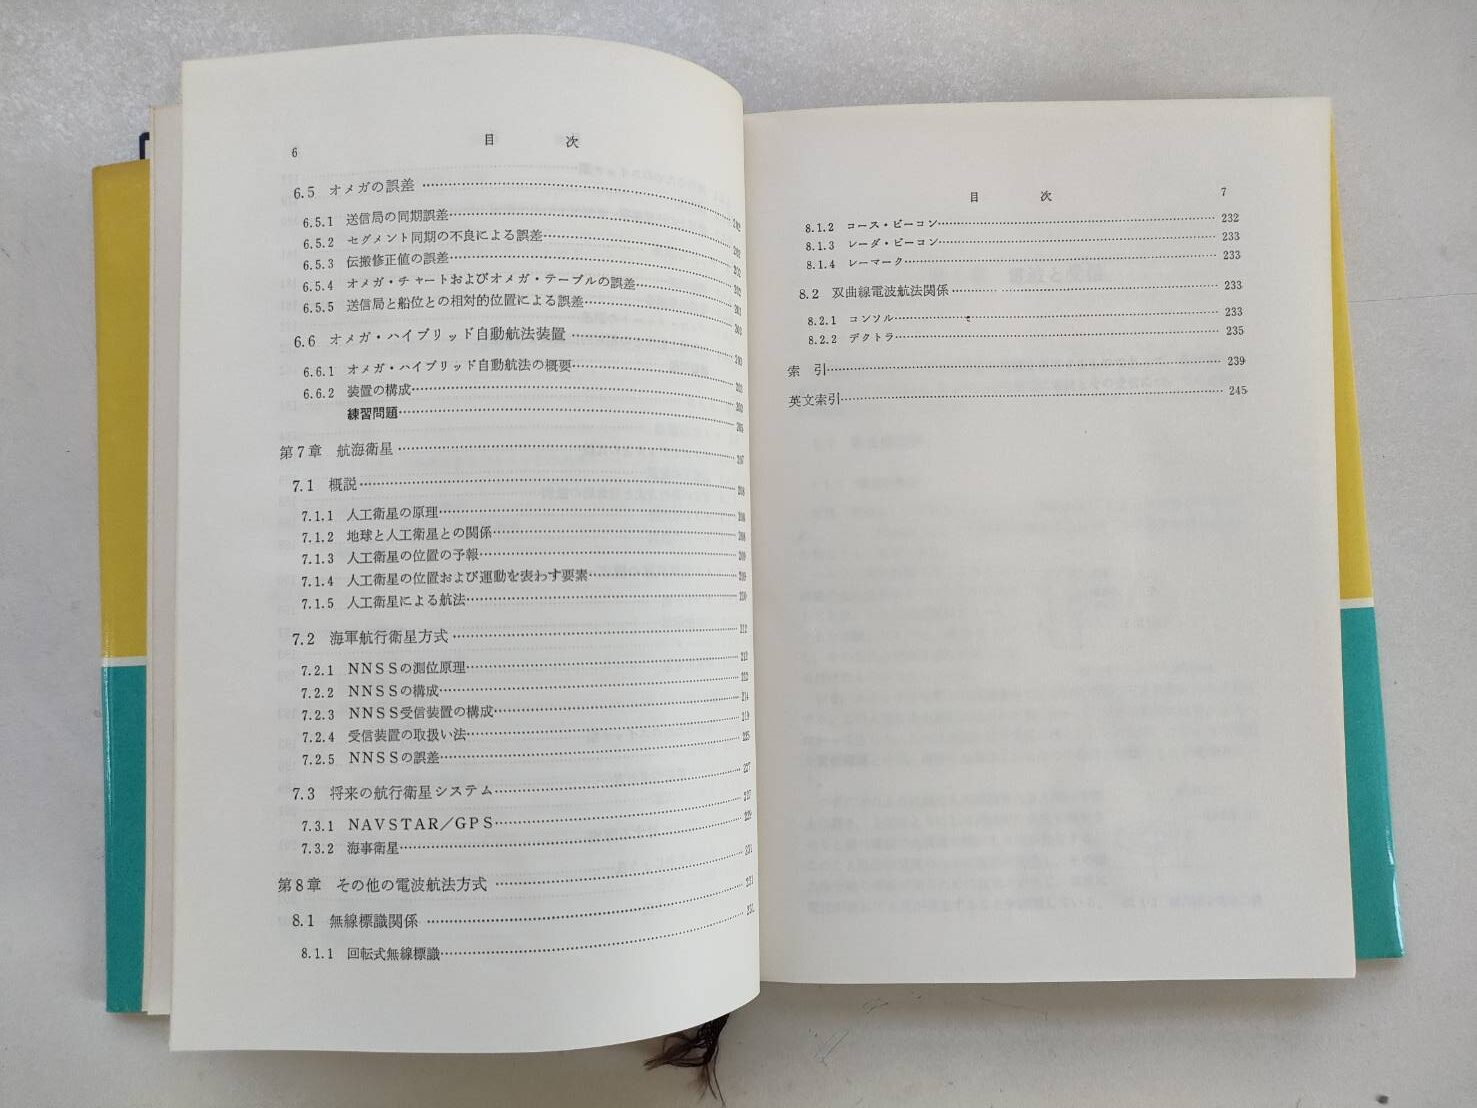 6 目次
6.5 オメガの誤差
6.5.1 送信局の同期誤差
6.5.2 セグメント同期の不良による誤差
6.5.3 伝搬修正値の誤差
6.5.4 オメガ・チャートおよびオメガ・テーブルの誤差
6.5.5 送信局と船位との相対的位置による誤差
6.6 オメガ・ハイブリッド自動航法装置
6.6.1 オメガ・ハイブリッド自動航法の概要
6.6.2 装置の構成
練習問題
第7章 航海衛星 207
7.1 概説 208
7.1.1 人工衛星の原理 208
7.1.2 地球と人工衛星との関係 208
7.1.3 人工衛星の位置の予報 209
7.1.4 人工衛星の位置および運動を表わす要素
7.1.5 人工衛星による航法
7.2 海軍航行衛星方式 212
7.2.1 NNSSの測位原理 212
7.2.2 NNSSの構成 212
7.2.3 NNSS受信装置の構成 214
7.2.4 受信装置の取扱い法 219
7.2.5 NNSSの誤差 225
7.3 将来の航行衛星システム 227
7.3.1 NAVSTAR／GPS 227
7.3.2 海事衛星 229
第8章 その他の電波航法方式 231
8.1 無線標識関係 231
8.1.1 回転式無線標識 231
目次 7
8.1.2 コース・ビーコン 232
8.1.3 レーダ・ビーコン 233
8.1.4 レーマーク 233
8.2 双曲線電波航法関係 233
8.2.1 コンソル 233
8.2.2 デクトラ 235
索引 239
英文索引 245